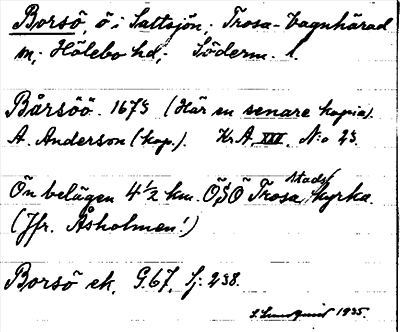 Borsö, ö i Saltsjön, Trosa-Vagnhärad
m, Hölebo hd, Söderm. l.
Bårsöö. 1673 (Här en senare kopia).
A. Anderson (kop.). K.A. XXX. N:o 23.
Ön belägen 4 1/2 km. ÖSÖ Trosa stads kyrka.
(Jfr. Åsholmen!)
Borsö ek. G.67. Sj: 238.
S. Lundquist 1935.